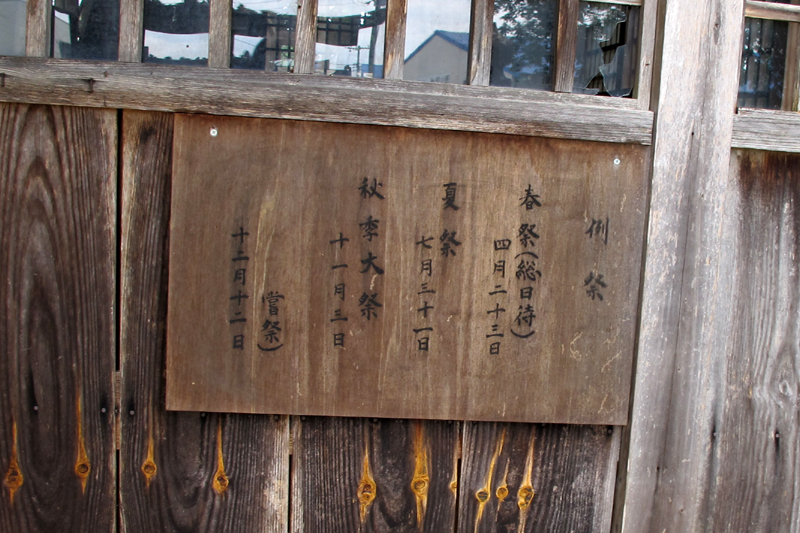 例祭
春祭(総日待)
四月二十三日
夏祭
七月三十一日
秋季大祭
十一月三日
嘗祭)
十二月十二日